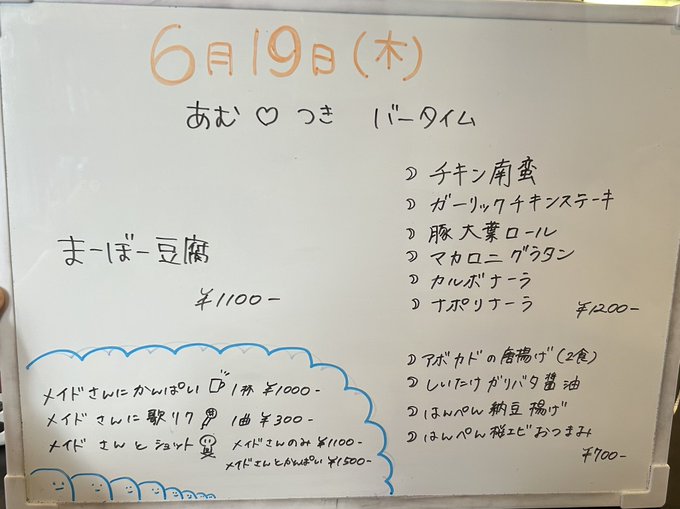 6月19日(木)
あむ♡つき バータイム
まーぼー豆腐
¥1100-
☽ チキン南蛮
☽ ガーリックチキンステーキ
☽ 豚大葉ロール
☽ マカロニグラタン
☽ カルボナーラ
☽ ナポリナーラ ¥1200-
☽ アボカドの唐揚げ(2食)
☽ しいたけガリバタ醤油
☽ はんぺん納豆揚げ
☽ はんぺん桜エビおつまみ
¥700-
メイドさんにかんぱい 1杯 ¥1000-
メイドさんに歌リク 1曲 ¥300-
メイドさんとショット メイドさんのみ ¥1100-
メイドさんとかんぱい ¥1500-